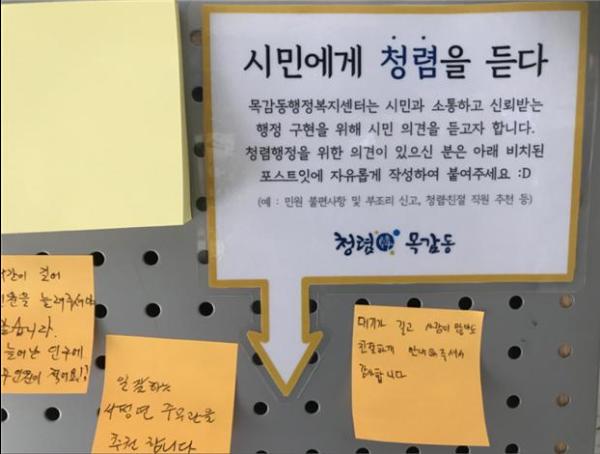 시민에게 청렴을 듣다
목감동행정복지센터는 시민과 소통하고 신뢰받는
행정 구현을 위해 시민 의견을 듣고자 합니다.
청렴행정을 위한 의견이 있으신 분은 아래 비치된
포스트잇에 자유롭게 작성하여 붙여주세요 :D
(예 : 민원 불편사항 및 부조리 신고, 청렴친절 직원 추천 등)
청렴 목감동
길어
늘려주셔
늘어난 인구에
일 잘하는
주무관를
추천 합니다
대기가 길고 사람이 많아도
친절하게 안내해주셔서
감사합니다